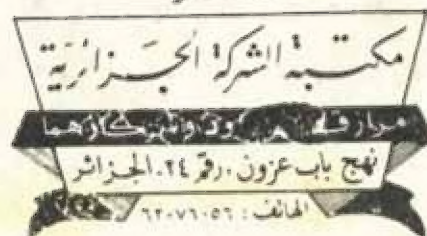 مكتبة الشركة الجزائرية
مرازقه وشركاؤهما
نهج باب عزون. رقم ٢٤. الجزائر
الهاتف: ٥٦-٧٦-٦٢